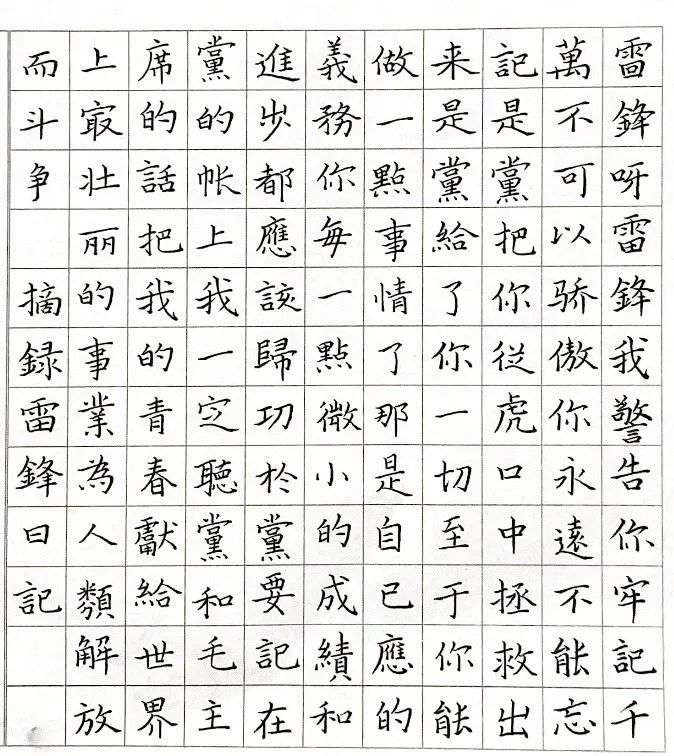 雷鋒呀雷鋒我警告你牢記千
萬不可以骄傲你永遠不能忘
記是黨把你從虎口中拯救出
来是黨給了你一切至于你能
做一點事情了那是自已應的
義務你每一點微小的成績和
進步都應該歸功於黨要記在
黨的帐上我一定聽黨和毛主
席的話把我的青春獻給世界
上最壮丽的事業為人類解放
而斗争 摘録雷鋒日記